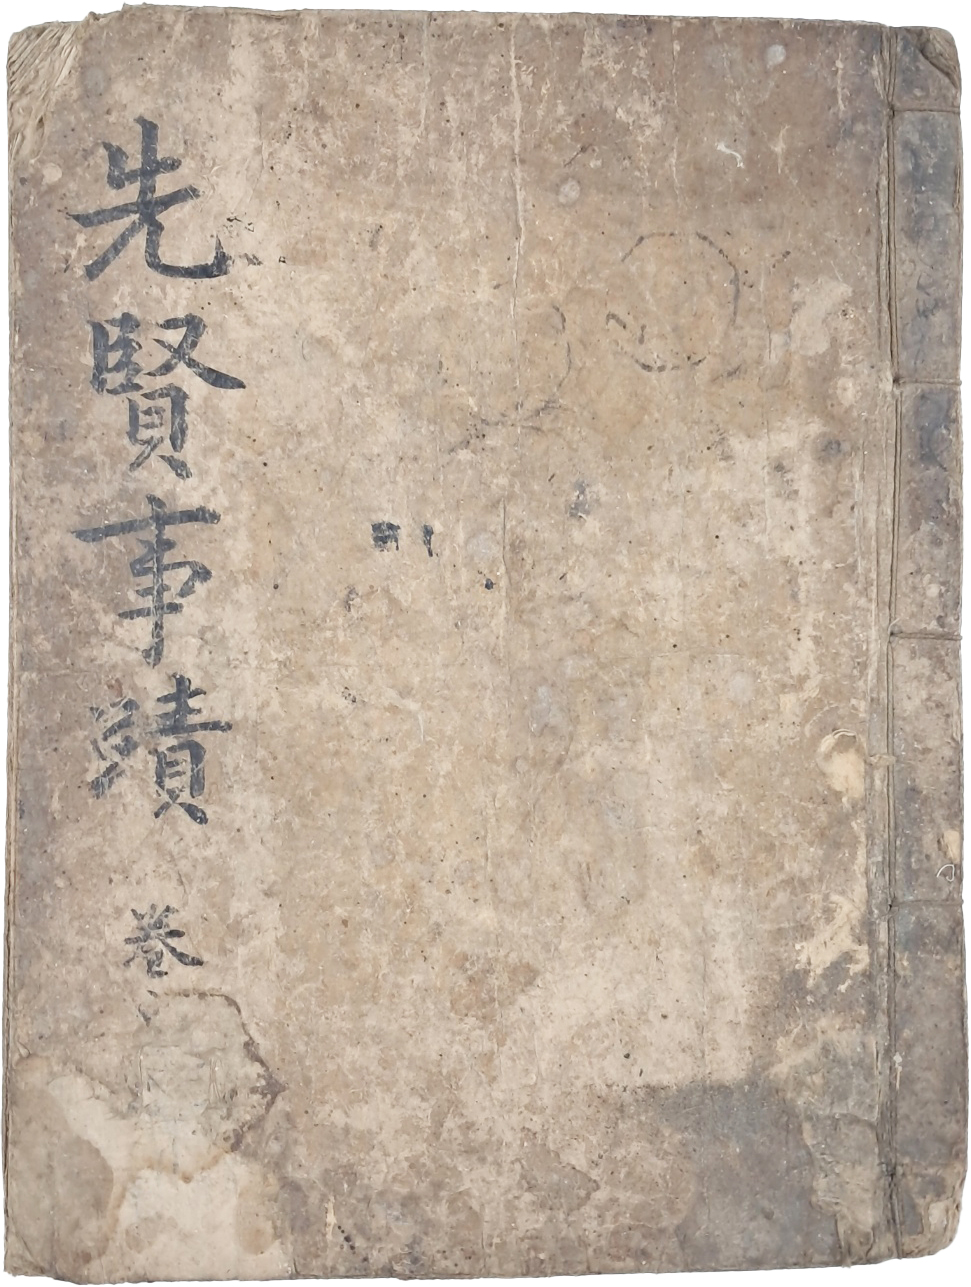 先賢事蹟 巻